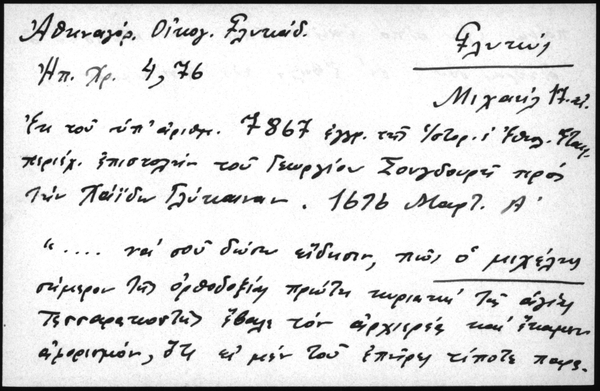 Ἀθηναγόρ. Οἴκογ. Γλυκάδ.
Γλυκύς
Ἠπ. Χρ. 4, 76
Μιχαὴλ 17. αἰ.
Ἐκ τοῦ ὑπ' ἀριθμ. 7867 ἐγγρ. τῆς Ἱστορ. ἑ Ἐθνολ. Ἑταιρ.
περιέχ. ἐπιστολὴν τοῦ Γεωργίου Σουγδουρῆ πρὸς
τὴν Χαϊδω Γλύκαιναν. 1696 Μαρτ. Α'
".... νὰ σοῦ δώσω εἴδησιν, πῶς ὁ μιχέλης
σήμερον τῆς ὀρθοδοξίας πρώτη κυριακὴ τῆς ἁγίας
Τεσσαρακοστῆς ἔβαλε τὸν ἀρχιερέα καὶ ἔκαμεν
ἀφορισμόν, ὅτι εἰ μὲν τοῦ ἐπῆρες τίποτε παρε-